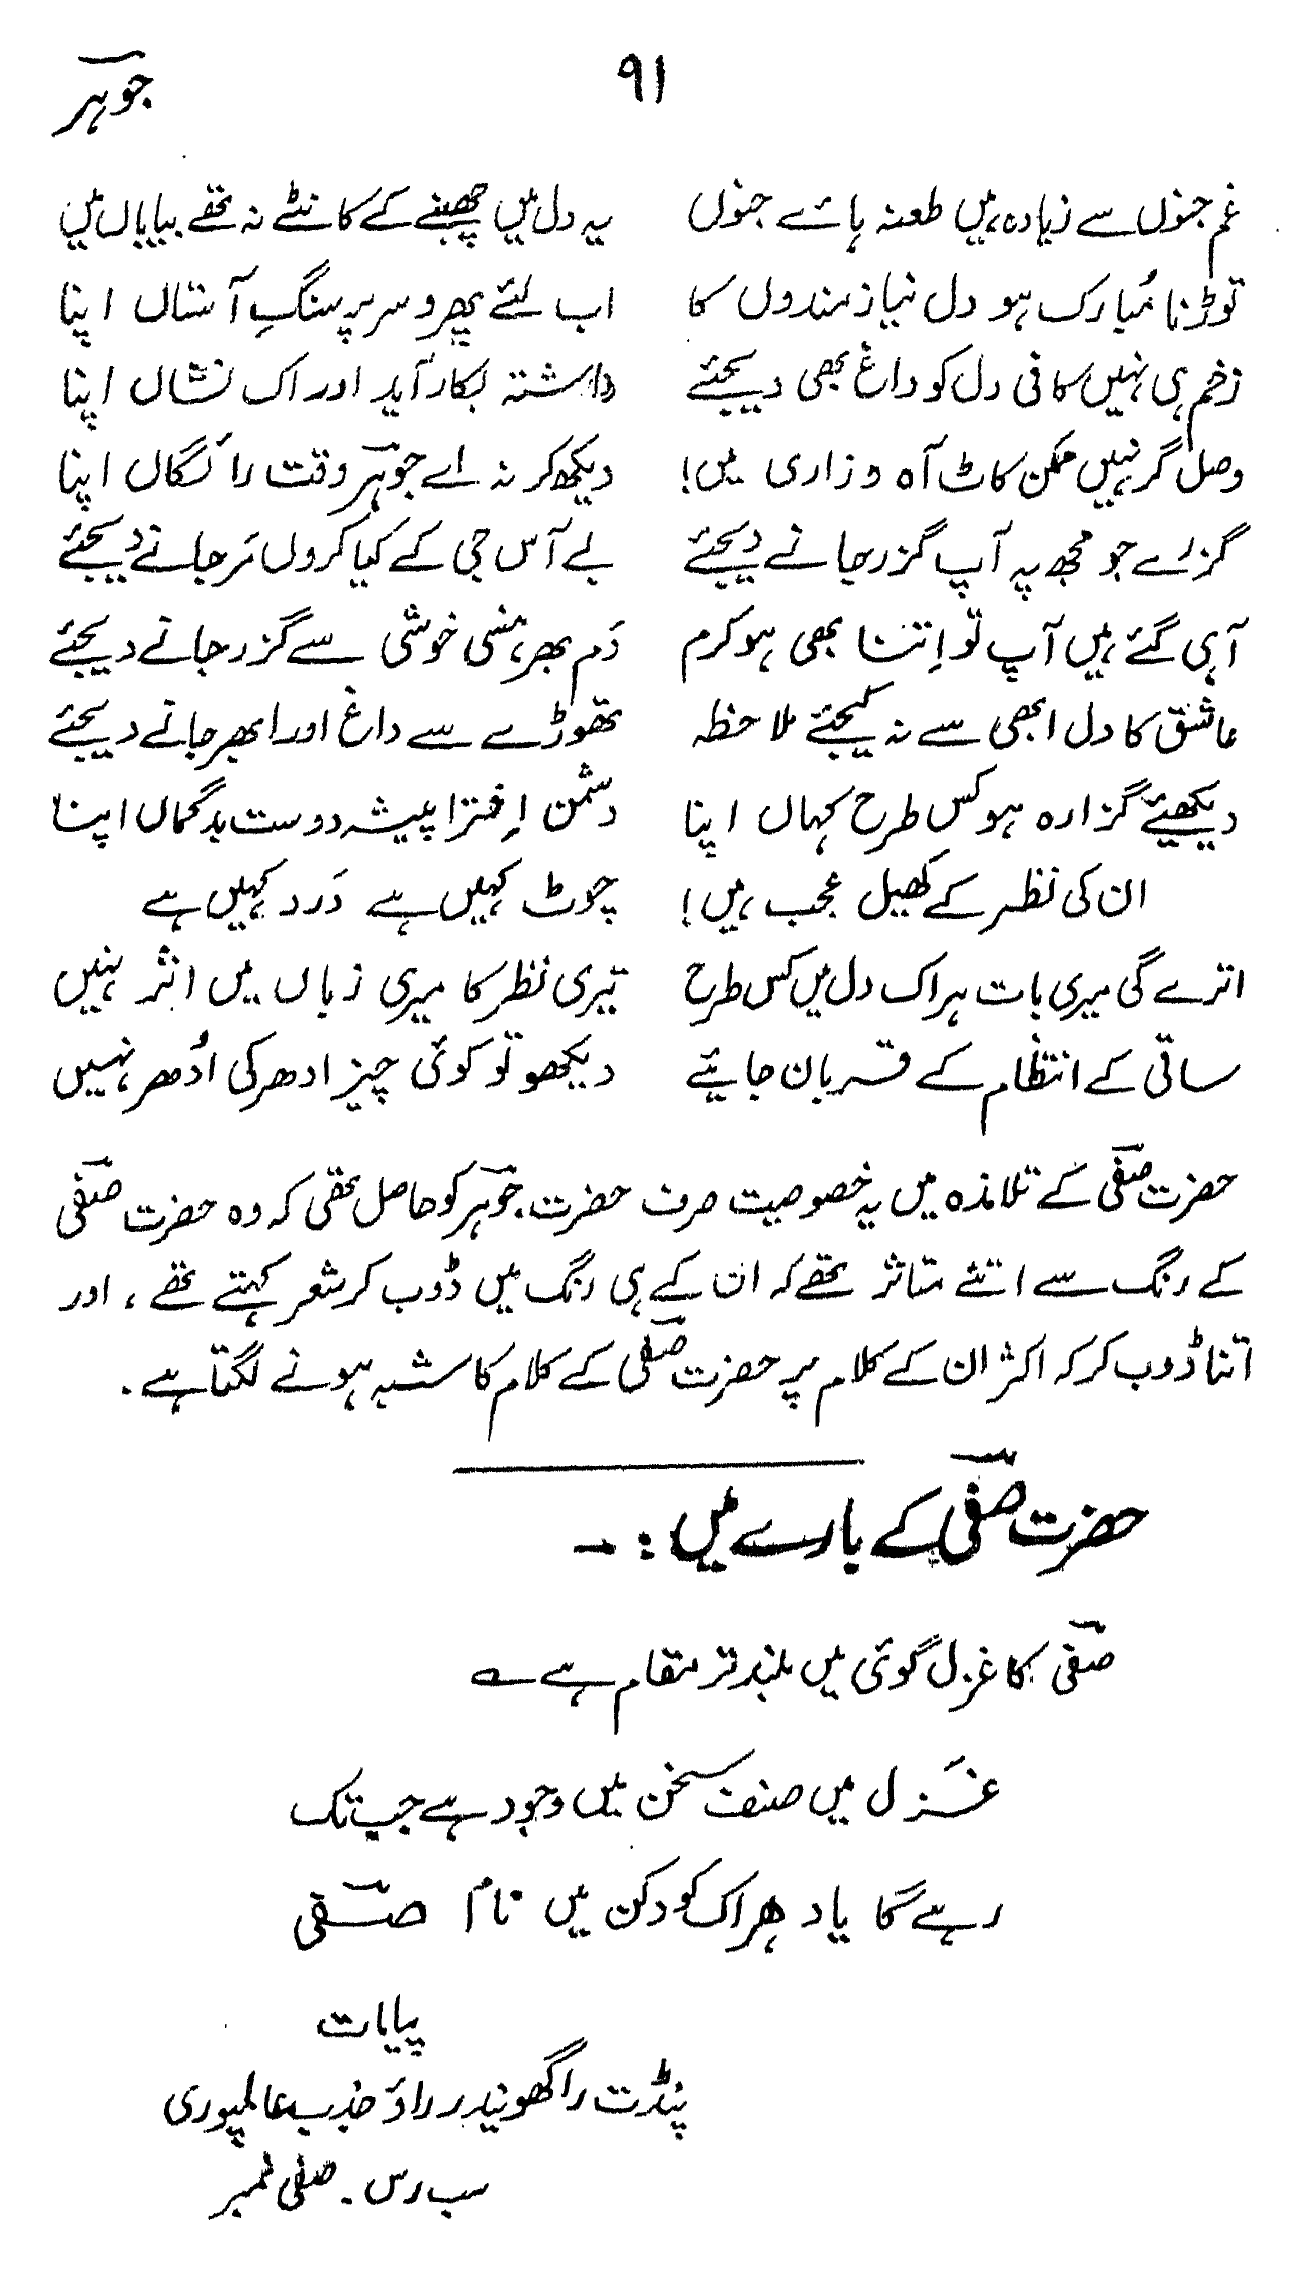 جوہر
۹۱
غم جنوں سے زیادہ ہیں طعنہ ہائے جنوں یہ دل میں چبھنے کے کانٹے نہ تھے بیاباں میں
توڑنا مُبارک ہو دل نیاز مندوں کا اب لئے پھرو سر پر سنگِ آستاں اپنا
زخم ہی نہیں کافی دل کو داغ بھی دیجئے داشتہ بکار آید اور اک نشاں اپنا
وصل گر نہیں ممکن کاٹ آہ و زاری میں! دیکھ کر نہ اے جوہر وقت رائگاں اپنا
گزرے جو مجھ پہ آپ گزر جانے دیجئے بے آس جی کے کیا کروں مَر جانے دیجئے
آہی گئے ہیں آپ تو اِتنا بھی ہو کرم دَم بھر ہنسی خوشی سے گزر جانے دیجئے
عاشق کا دل ابھی سے نہ کیجئے ملاحظہ تھوڑے سے داغ اور ابھر جانے دیجئے
دیکھئیے گزارہ ہو کس طرح کہاں اپنا دشمن اِفترا پیشہ دوست بدگماں اپنا
ان کی نظر کے کھیل عجب ہیں! چوٹ کہیں ہے دَرد کہیں ہے
اترے گی میری بات ہر اک دل میں کس طرح تیری نظر کا میری زباں میں اثر نہیں
ساقی کے انتظام کے قربان جائیے دیکھو تو کوئی چیز ادھر کی اُدھر نہیں
حضرت صفی کے تلامذہ میں یہ خصوصیت صرف حضرت جوہر کو حاصل تھی کہ وہ حضرت صفی
کے رنگ سے اتنے متاثر تھے کہ ان کے ہی رنگ میں ڈوب کر شعر کہتے تھے ، اور
اتنا ڈوب کر کہ اکثر ان کے کلام پر حضرت صفی کے کلام کا شبہ ہونے لگتا ہے .
حضرت صفی کے بارے میں :-
صفی کا غزل گوئی میں بلند تر مقام ہے ؎
غزل میں صنف سخن میں وجود ہے جب تک
رہے گا یاد ہر اک کو دکن میں نام صفی
پایات
پنڈت راگھویندر راؤ جذب عالمپوری
سب رس ۔ صفی نمبر